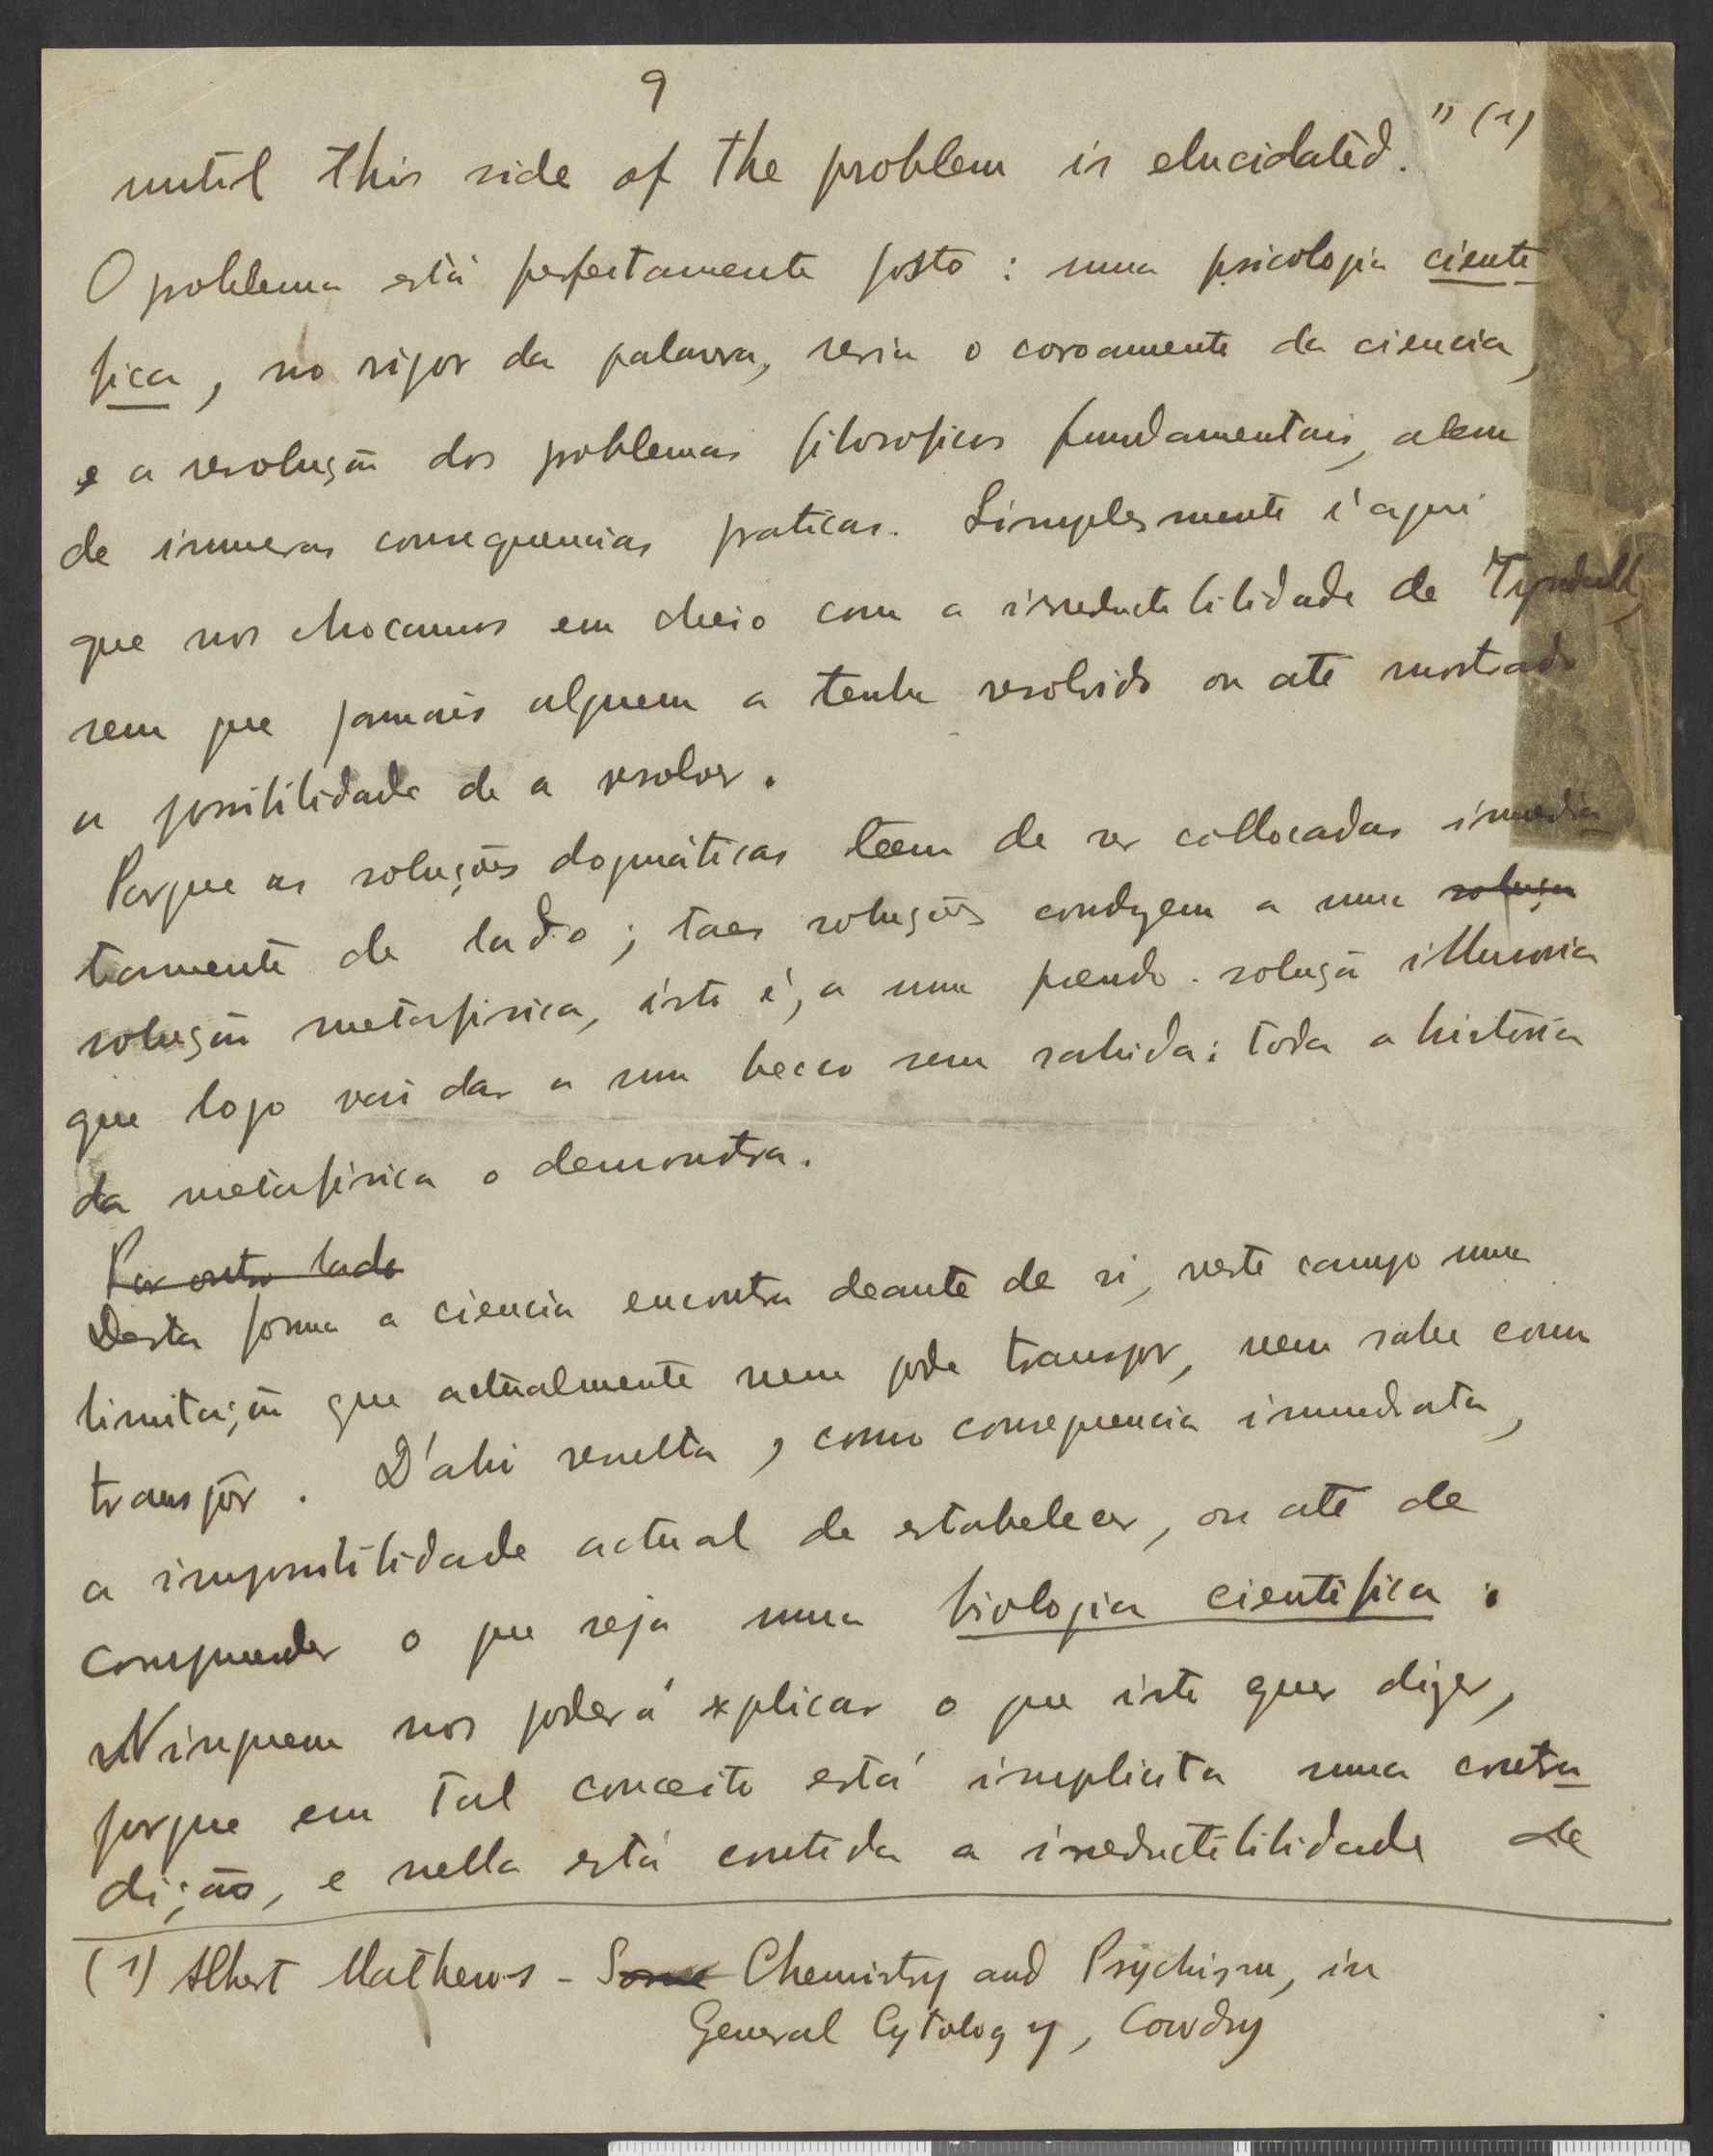 9
until this side of the problem is elucidated." (1)
O problema está perfeitamente posto : uma psicologia cienti
fica, no rigor da palavra, seria o coroamento da ciencia,
e a resolução dos problemas filosoficos fundamentais, alem
de inumeras consequencias praticas. Simplesmente é aqui
que nos chocamos em cheio com a irreductibilidade de Tyndall,
sem que jamais alguem a tenha resolvido ou até mostrado
a possibilidade de a resolver.
Porque as soluções dogmáticas teem de ser collocadas imedia
tamente de lado ; taes soluções conduzem a uma solução
solução metafisica, isto é, a uma pseudo-solução illusoria
que logo vai dar a um becco sem sahida : toda a história
da metafisica o demonstra.
Por outro lado
Desta forma a ciencia encontra deante de si, neste campo uma
limitação que actualmente nem pode transpor, nem sabe como
transpôr. D'ahi resulta, como consequencia immediata,
a impossibilidade actual de estabelecer, ou até de
comprender o que seja uma biologia cientifica.
Ninguem nos poderá explicar o que isto quer dizer,
porque em tal conceito está implicita uma contra
dição, e nella está contida a irreductibilidade de
(1) Albert Mathews - Some Chemistry and Psychism, in
General Cytology, Cowdry